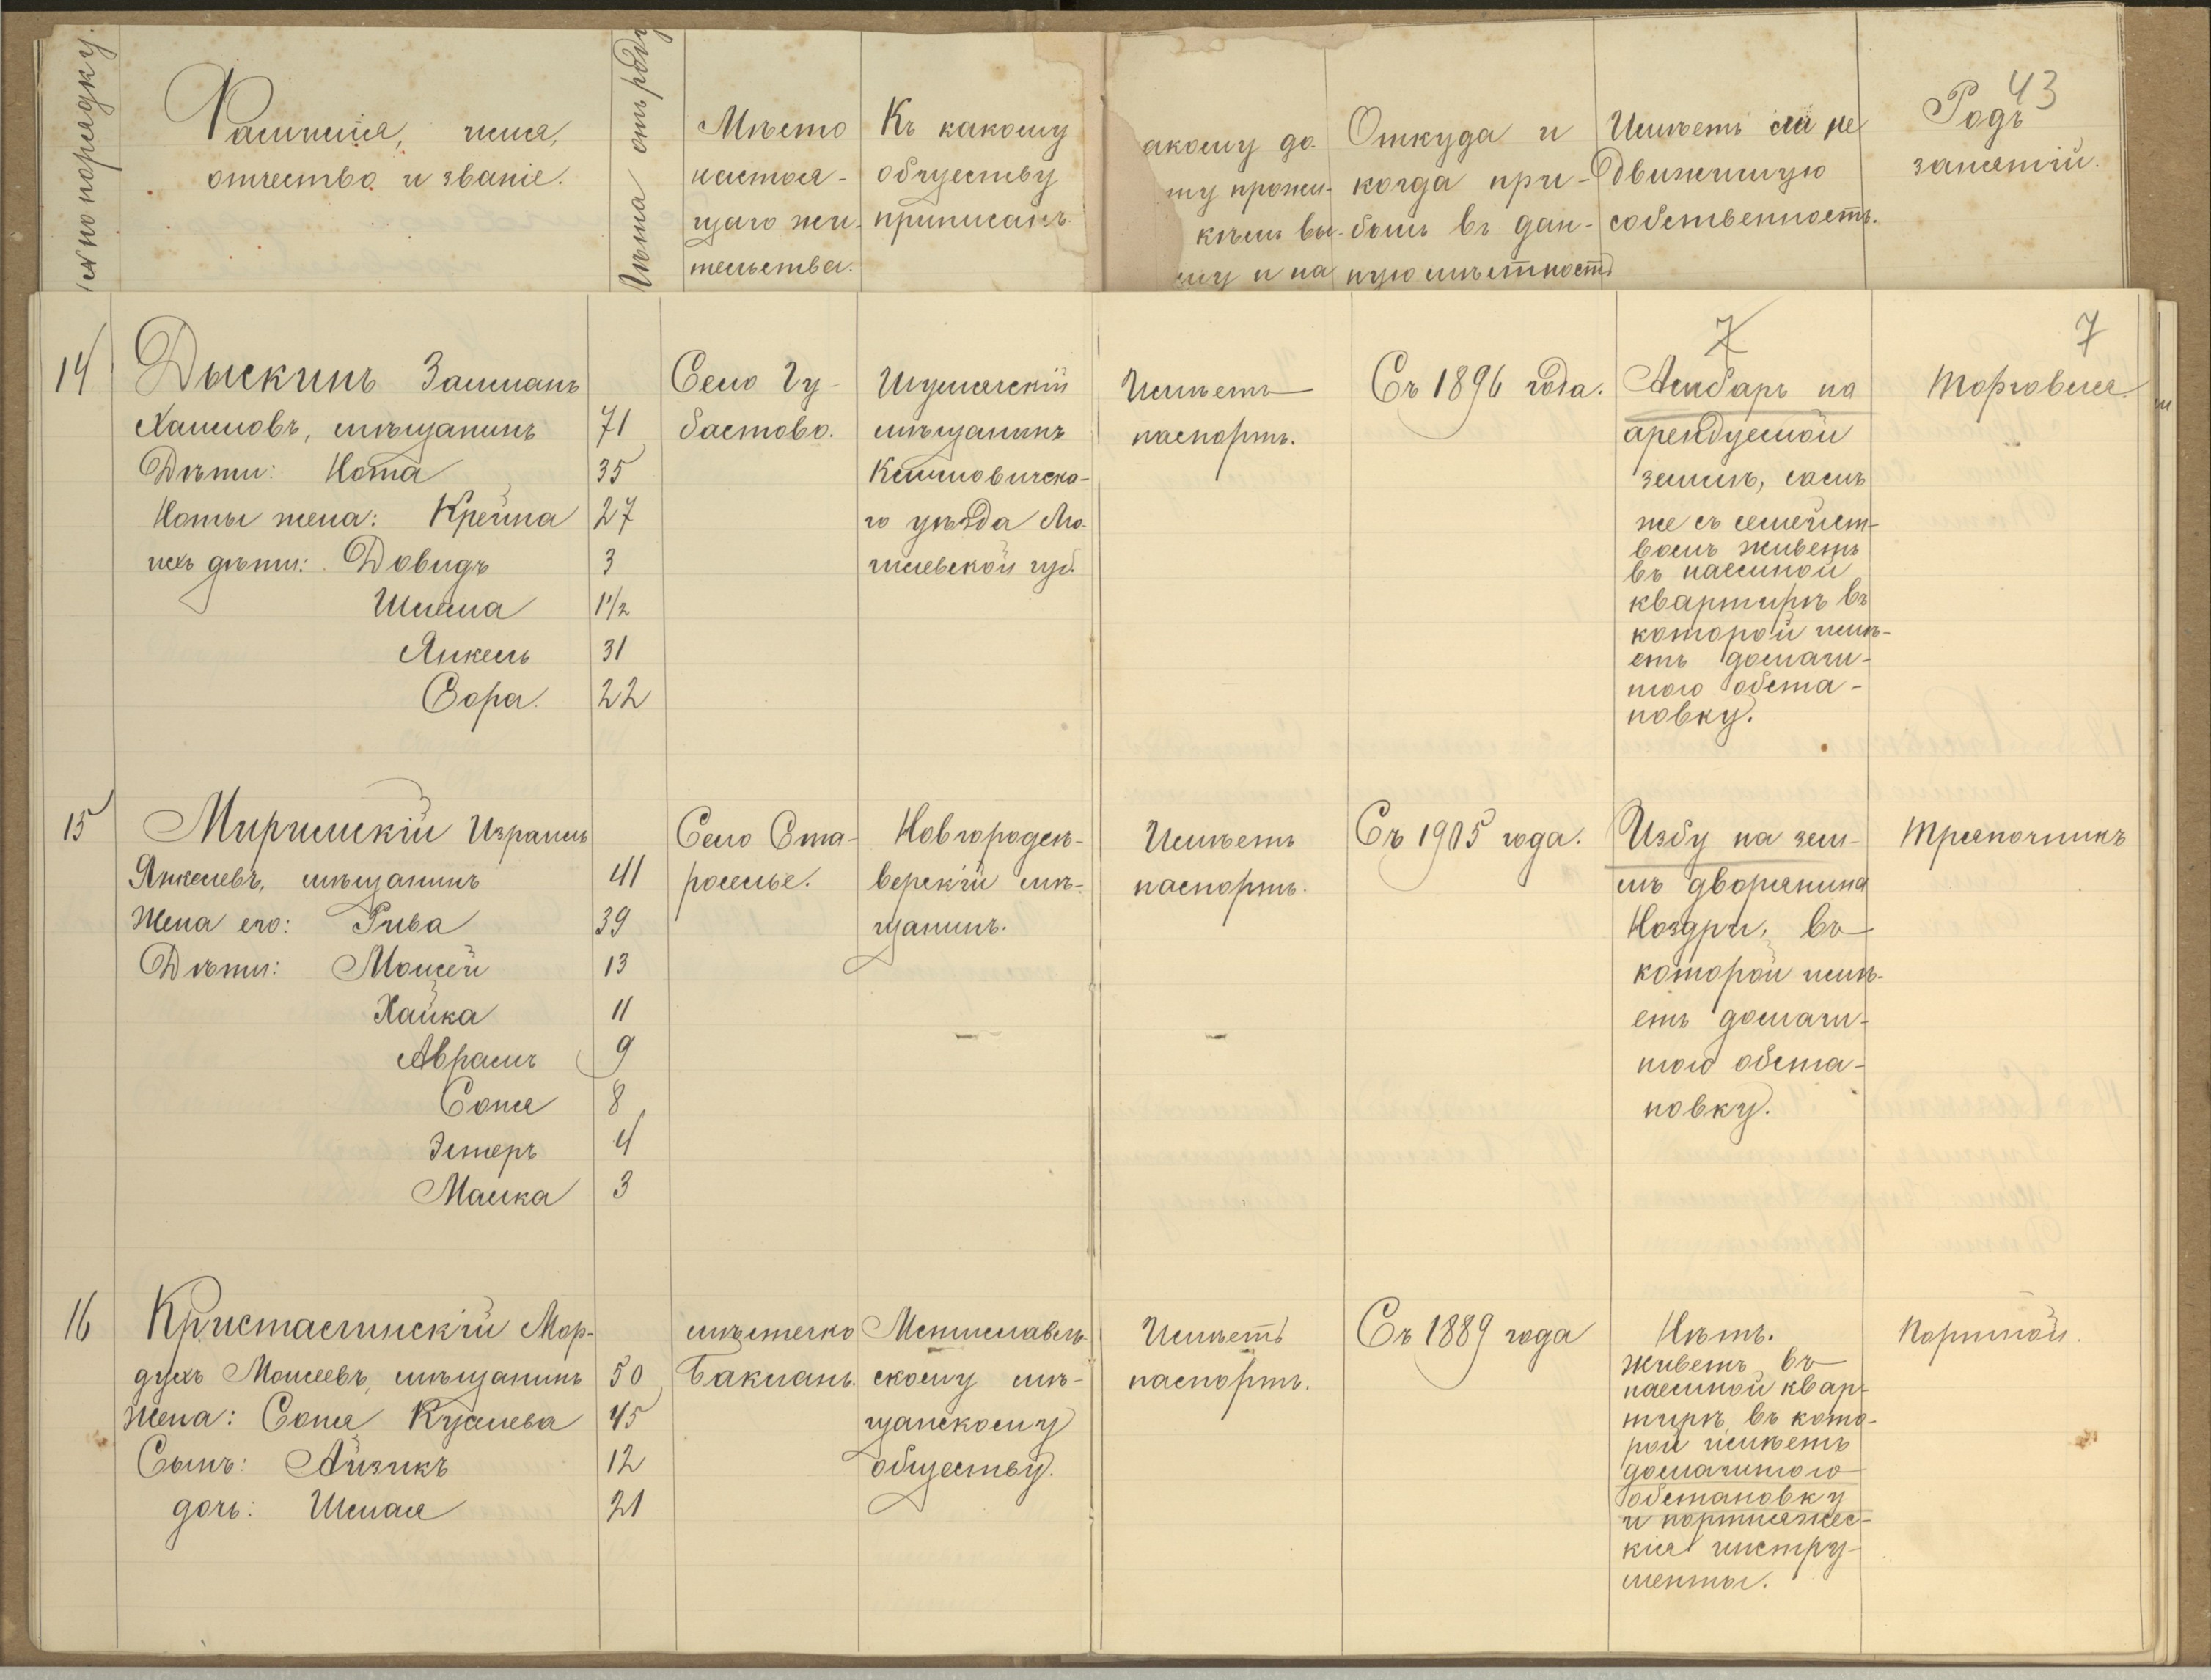 43
№ по порядку.
Фамилія, имя,
отчество и званіе.
Лѣта отъ роду
Мѣсто
настоя-
щаго жи-
тельства.
Къ какому
обществу
приписанъ.
акому до-
ту прожи-
кѣмъ вы-
му и на
Откуда и
когда при-
былъ въ дан-
ную мѣстность
Имѣетъ ли не
движимую
собственность.
Родъ
занятій.
7
7
14
Дыскинъ Залманъ
Хаимовъ, мѣщанинъ 71
Дѣти: Нота 35
Ноты жена: Крейна 27
ихъ дѣти: Довидъ 3
Шмама 1 1/2
Янкель 31
Сора. 22
Село Гу-
бастово.
Шумячскій
мѣщанинъ
Климовичска-
го уѣзда Мо-
гилевской губ.
Имѣетъ
паспортъ.
Съ 1896 года.
Амбаръ на
арендуемой
землѣ, самъ
же съ семейст-
вомъ живетъ
въ наемной
квартирѣ въ
которой имѣ-
етъ домаши-
юю обста-
новку.
Торговля.
15
Миримскій Израиль
Янкелевъ, мѣщанинъ 41
Жена его: Рива 39
Дѣти: Моисей 13
Хайка 11
Абрамъ 9
Соня 8
Эстеръ 4
Малка 3
Село Ста-
роселье.
Новгородсѣ-
верскій мѣ-
щанинъ.
Имѣетъ
паспортъ.
Съ 1905 года.
Избу на зем-
лѣ дворянина
Ноздри, въ
которой имѣ-
етъ домаши-
юю обста-
новку.
Тряпочникъ
16
Кристаслинскій Мор-
духъ Моисеевъ, мѣщанинъ 50
Жена: Соня Кусиелева 45
Сынъ: Айзикъ 12
дочь: Шмая 21
мѣстечко
Баклань.
Мстиславль-
скому мѣ-
щанскому
обществу.
Имѣетъ
паспортъ.
Съ 1889 года
Нѣтъ.
Живетъ въ
наемной квар-
тирѣ, въ кото-
рой имѣетъ
домашнюю
обстановку
и портняжес-
кія инстру-
менты.
Портной.